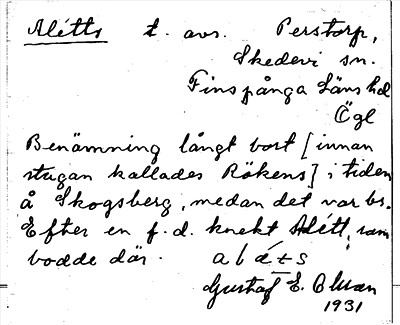 Alétts t. avs. Perstorp,
Skedevi sn.
Finspånga läns hd
Ögl
Benämning långt bort [innan
stugan kallades Rökens] i tiden
å Skogsberg, medan det var bs.
Efter en f.d. knekt Alétt, som
bodde där. alæts
Gustaf E. Olsson
1931